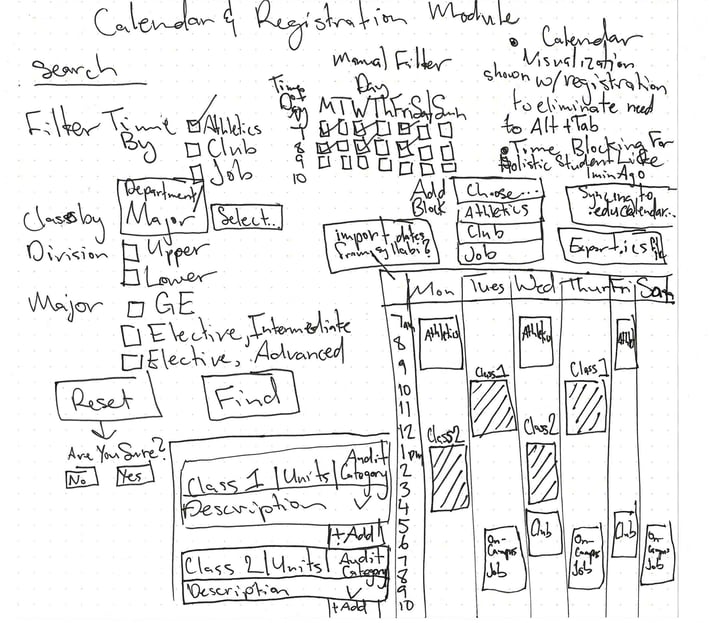 Calendar & Registration Module
Search
Filter Time
By
Athletics
Club
Job
Manual Filter
Day
Time
Of
Day
M T W Th Fri Sat Sun
7
8
9
10
• Calendar
Visualization
shown w/registration
to eliminate need
to Alt+Tab
• Time Blocking For
Holistic Student Life
Class by
Department/
Major
Select..
Division
Upper
Lower
Major
GE
Elective, Intermediate
Elective, Advanced
Reset
Find
Are You Sure?
No
Yes
Add
Block
Choose...
Athletics
Club
Job
1 min Ago
Syncing to
.edu calendar..
Export .ics file
import dates
from syllabi?
Mon
Tues
Wed
Thur
Fri
7am
8
9
10
11
12
1pm
2
3
4
5
6
7
8
9
10
Athletics
Athletics
Class 1
Class 1
Class 2
Class 2
Club
Club
On-
Campus
Job
On-
Campus
Job
On-
Campus
Job
Class 1 | Units | Audit
Category
Description
+Add
Class 2 | Units | Audit
Category
Description
+Add